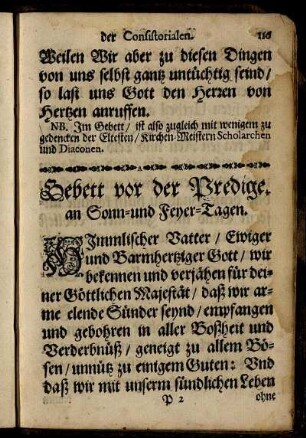 der Consistorialen. 116
Weilen Wir aber zu diesen Dingen
von uns selbst gantz untüchtig seind/
so last uns Gott den Herren von
Hertzen anruffen.
NB. Im Gebett/ ist also zugleich mit wenigem zu
gedencken der Eltesten/ Kirchen-Meistern Scholarchen
und Diaconen.
Gebett vor der Predige.
an Sonn-und Feyer-Tagen.
HImmlischer Vatter/ Ewiger
und Barmhertziger Gott/ wir
bekennen und verjähen für dei-
ner Göttlichen Majestät/ daß wir ar-
me elende Sünder seynd/ empfangen
und gebohren in aller Boßheit und
Verderbnüß/ geneigt zu allem Bö-
sen/ unnütz zu einigem Guten: Vnd
daß wir mit unserm sündlichen Leben
P 2 ohne